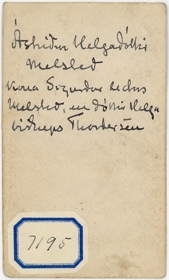 Ástríður Helgadóttir
Melsted
kona Sigurðar lectors
Melsted, en dóttir Helga
biskups Thordersen
7195